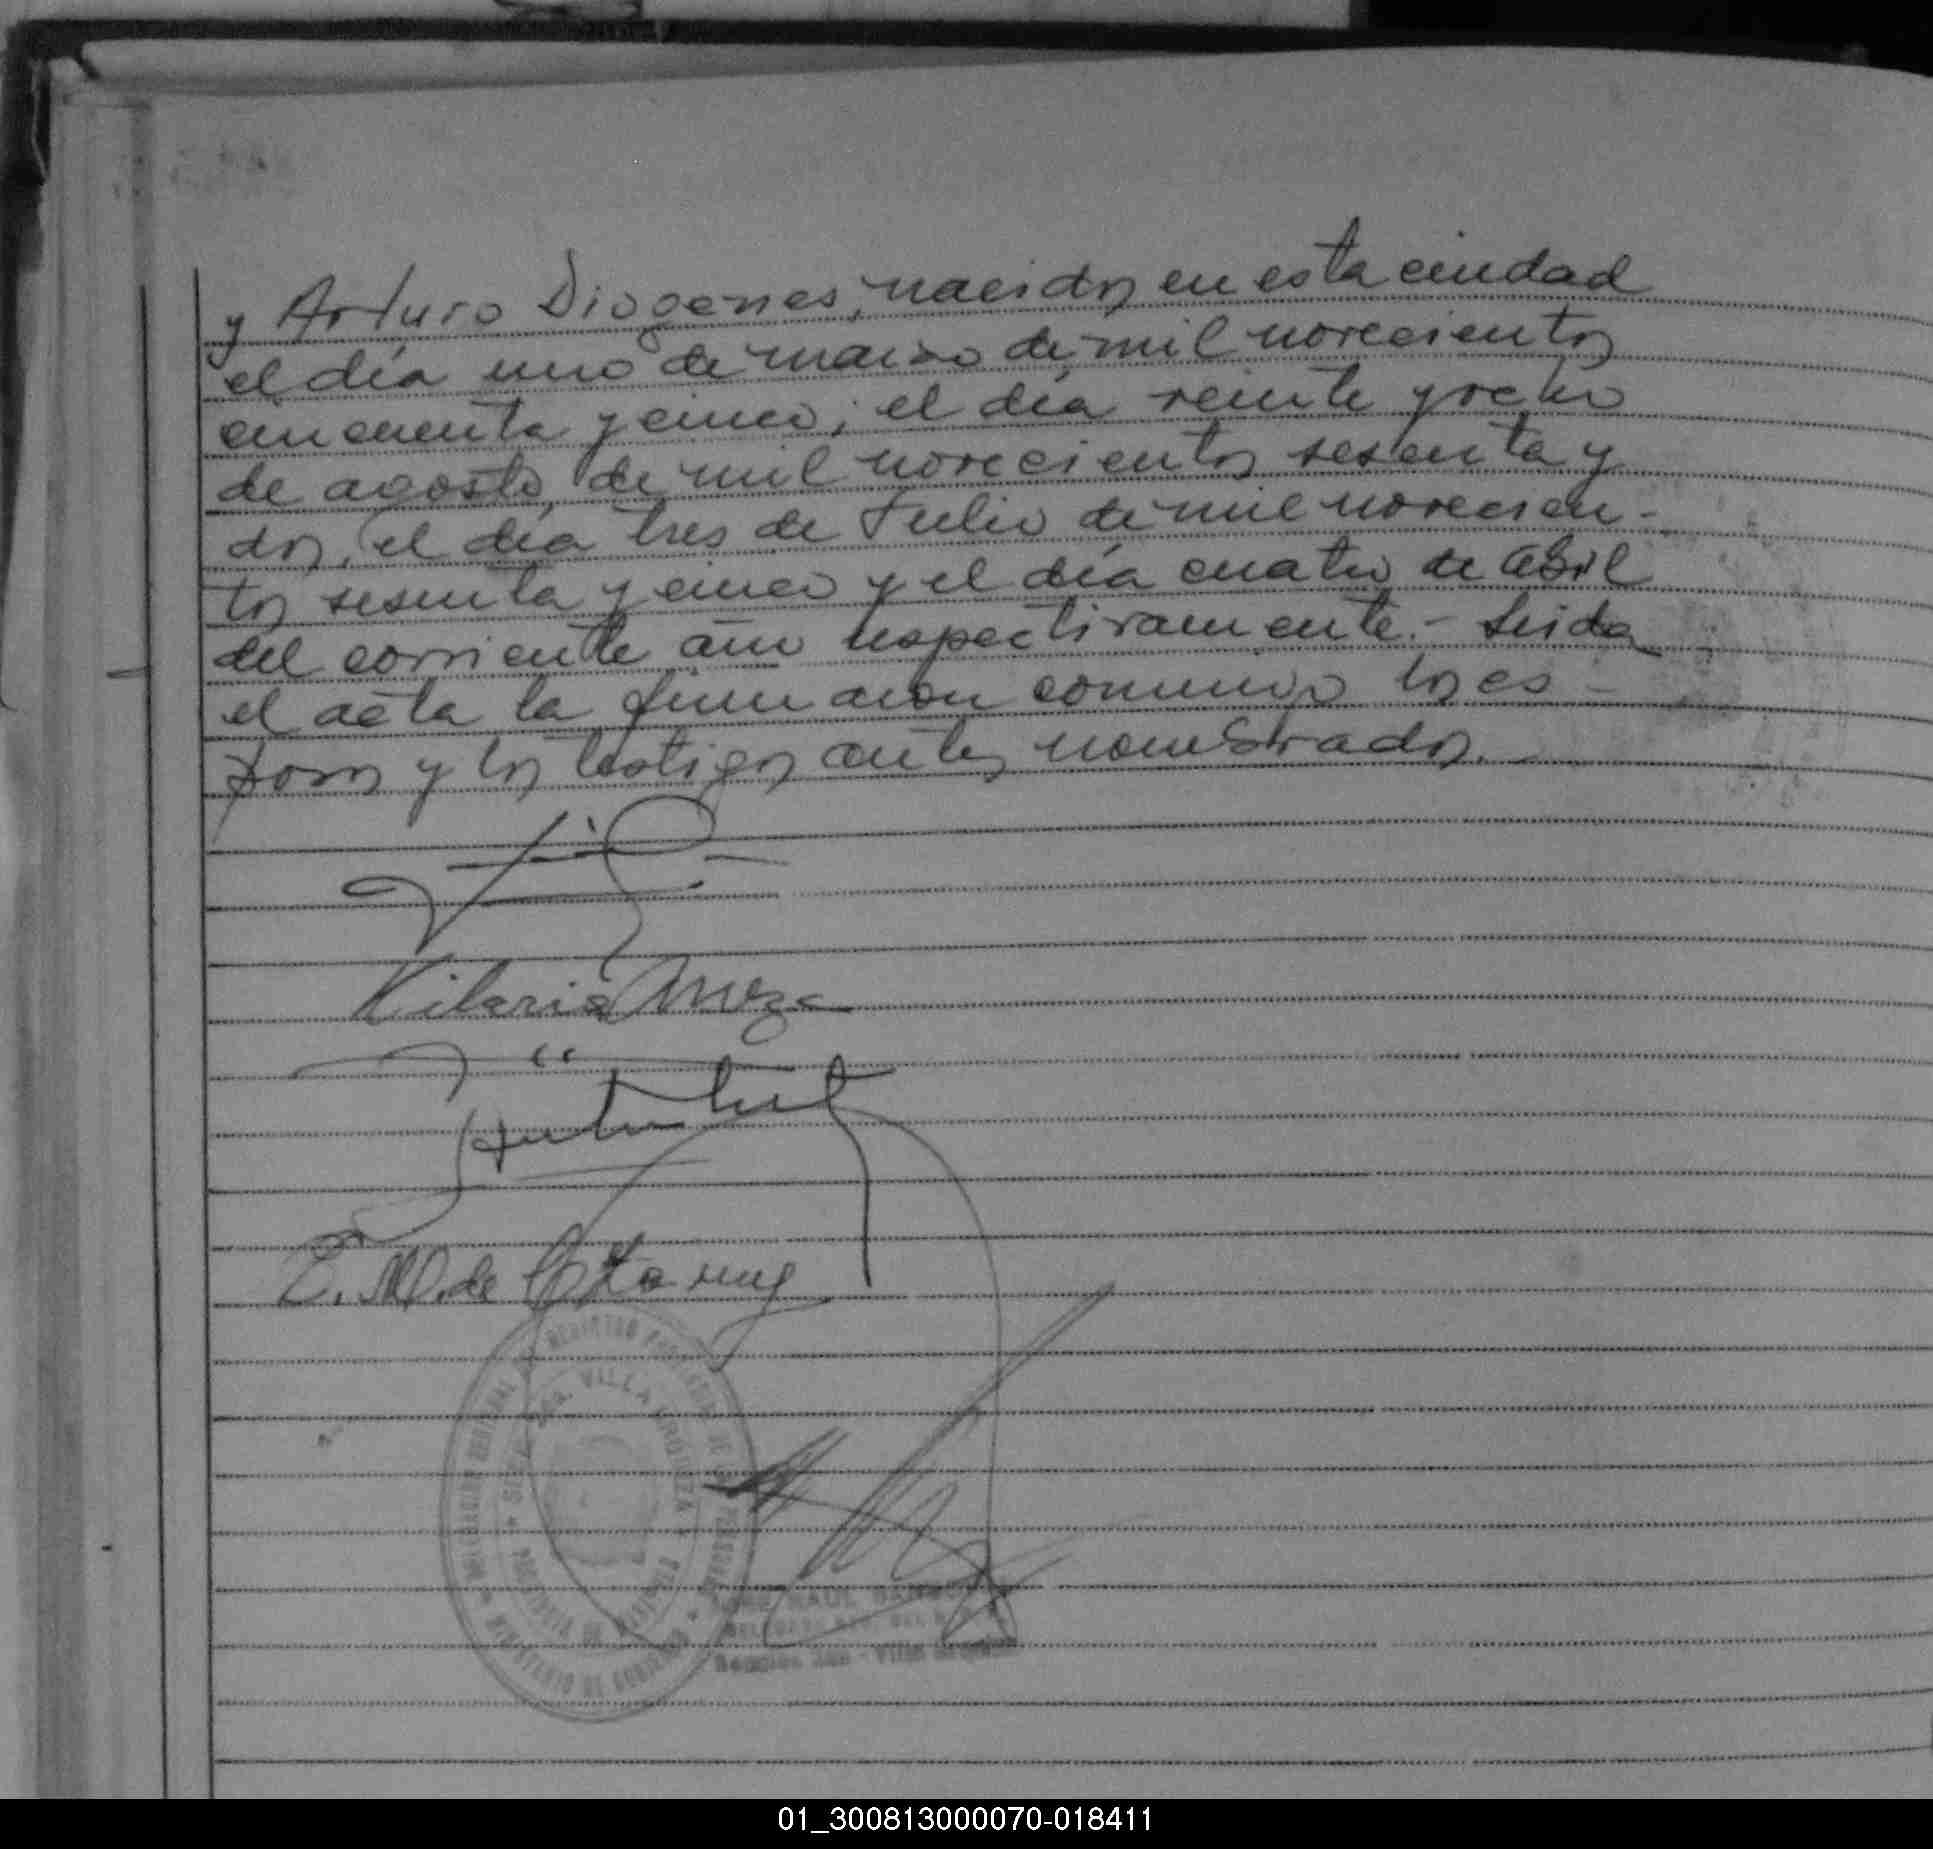 y Arturo Diogenes, nacidos en esta ciudad
el día uno de marzo de mil novecientos
cincuenta y cinco; el día veinte y ocho
de agosto de mil novecientos sesenta y
dos, el día tres de Julio de mil novecien-
tos sesenta y cinco y el día cuatro de abril
del corriente año respectivamente.- Leida
el acta la firman con conmigo los es-
posos y los testigos antes nombrados.
Hilaria Meza
E. M. de
VILLA URQUIZA
PROVINCIA DE
MINISTERIO DE GOBIERNO
RAUL
Villa Urquiza
01_300813000070-018411